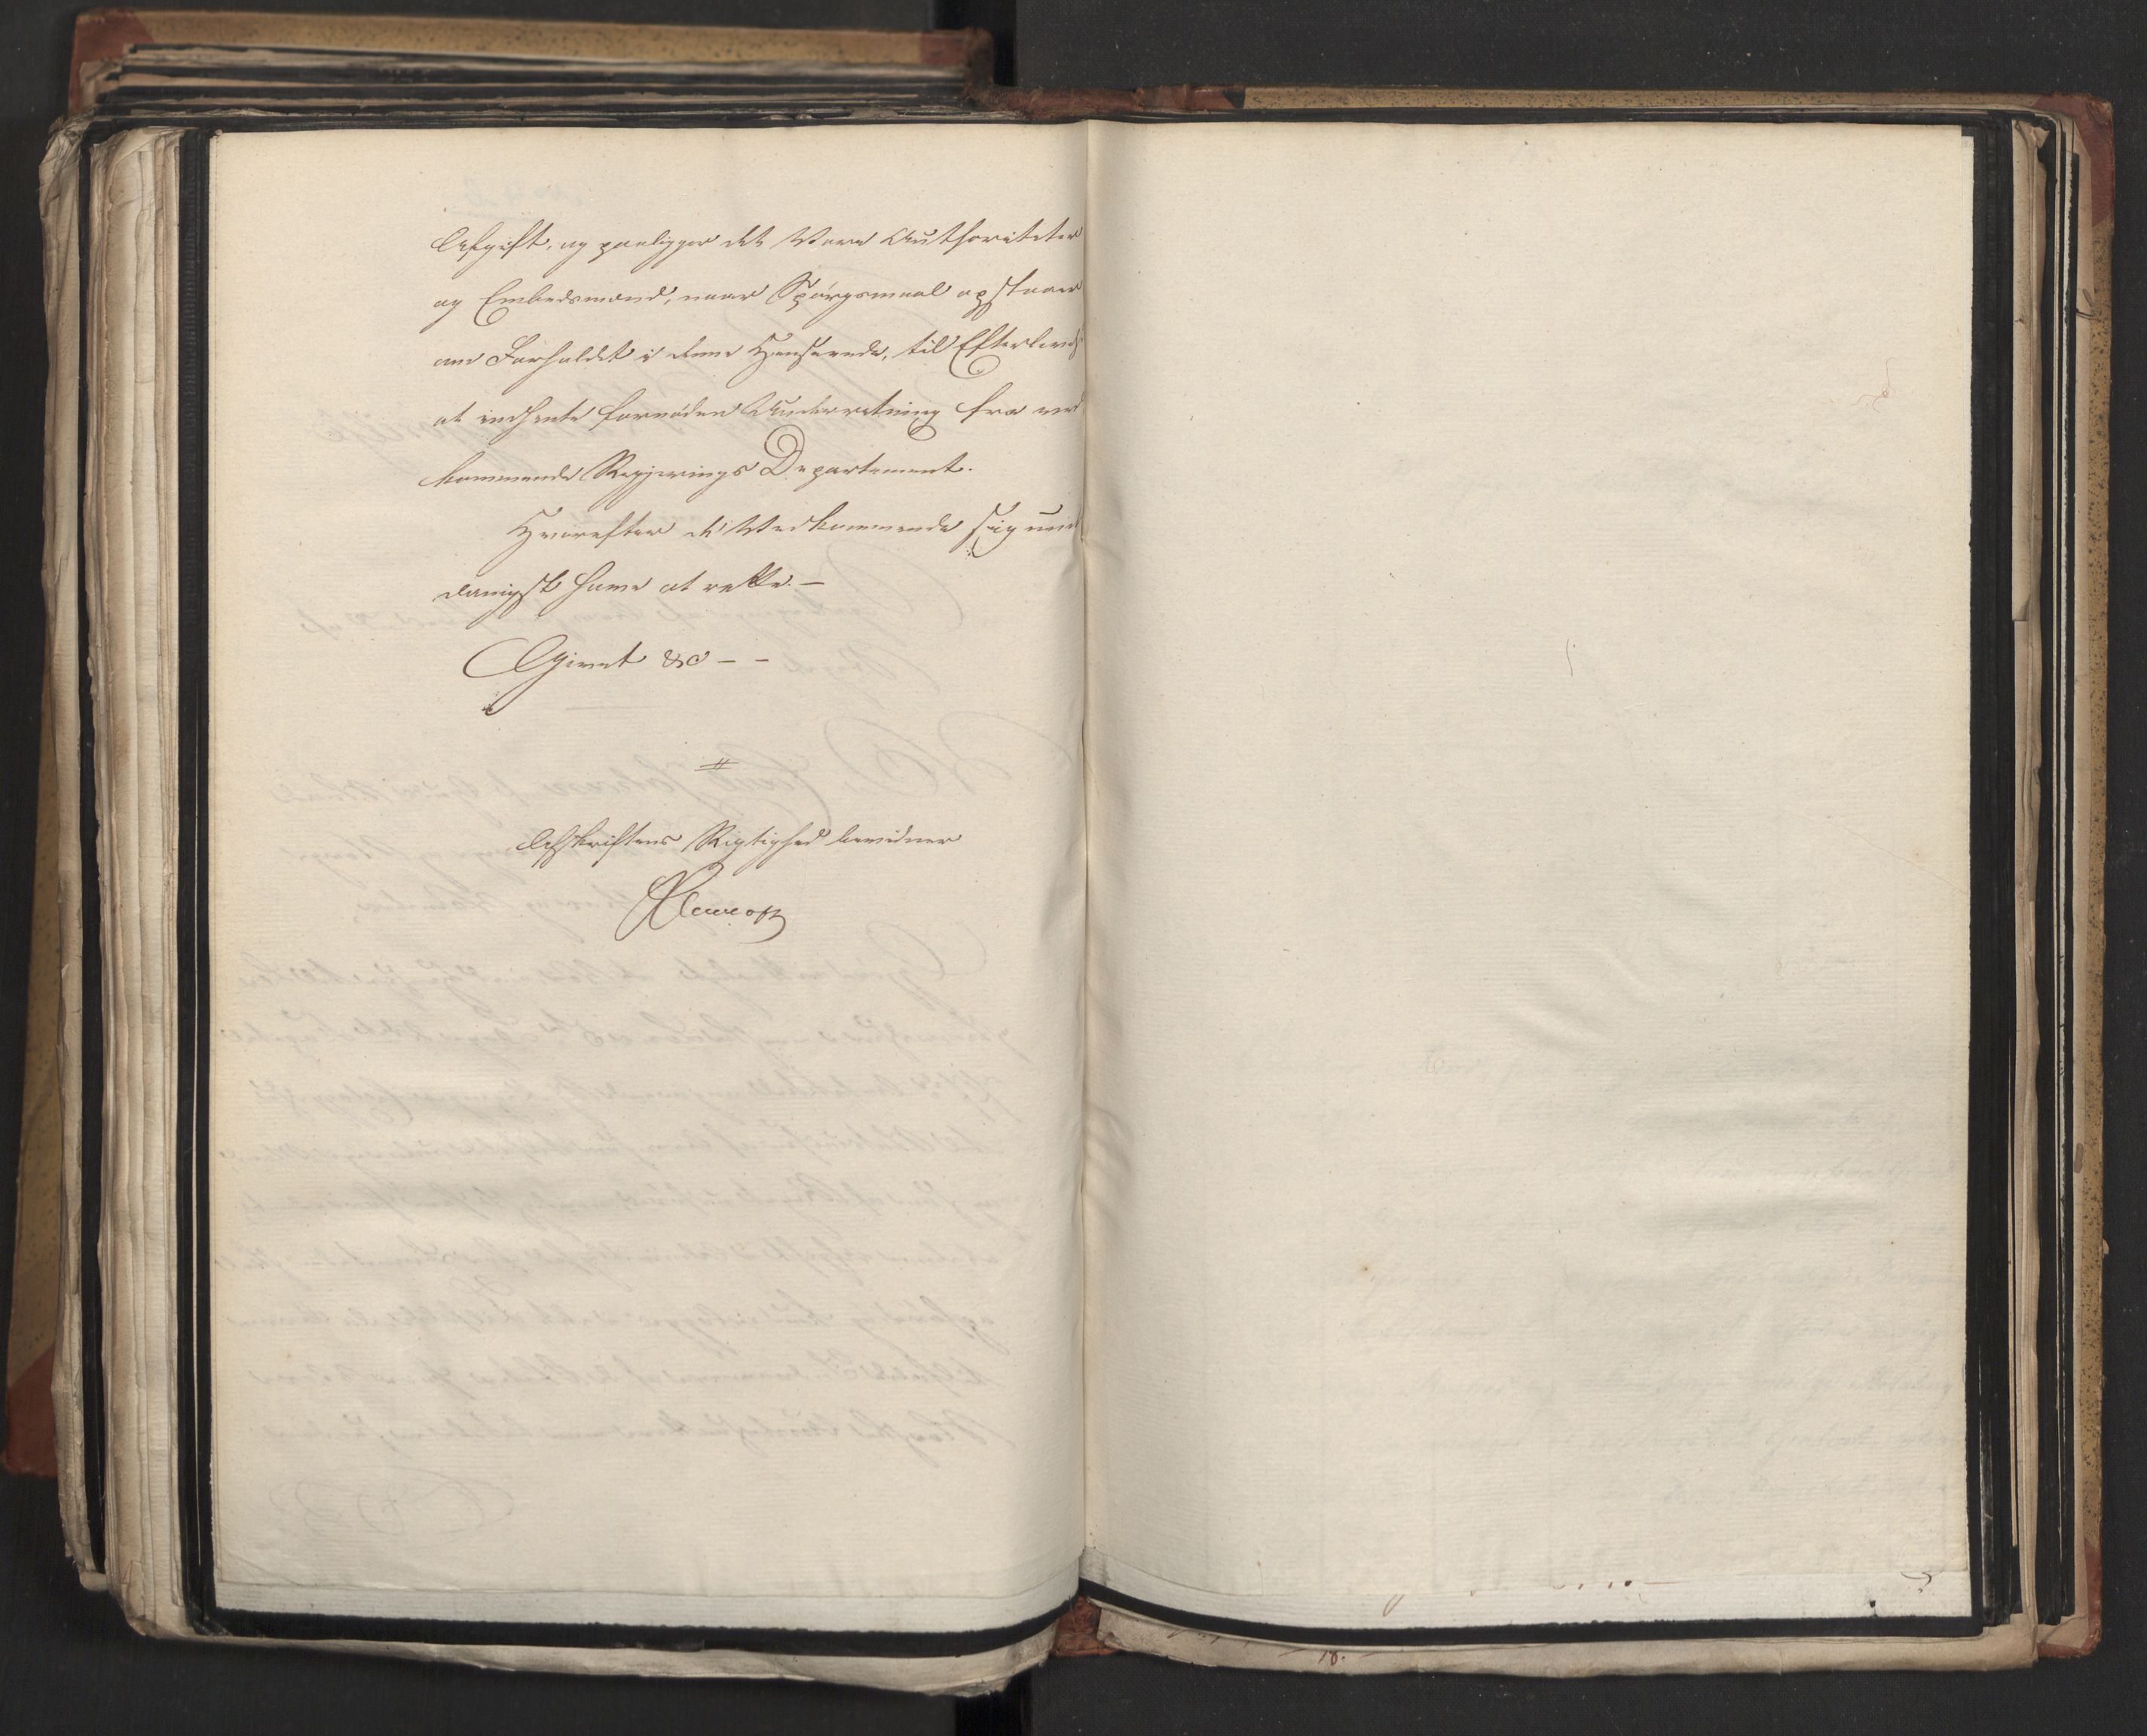 Afgift, og paaligger det Vore Authoriteter
og Embedsmænd, naar Spørgsmaal opstaaer
om Forholdet i denne Henseende, til Efterlevelse
at indhente fornøden Underretning fra ved-
kommende Regjerings Departement.
Hvorefter de Vedkommende sig under-
danigst have at rette. —
Givet &c — —
Afskriftens Rigtighed bevidner